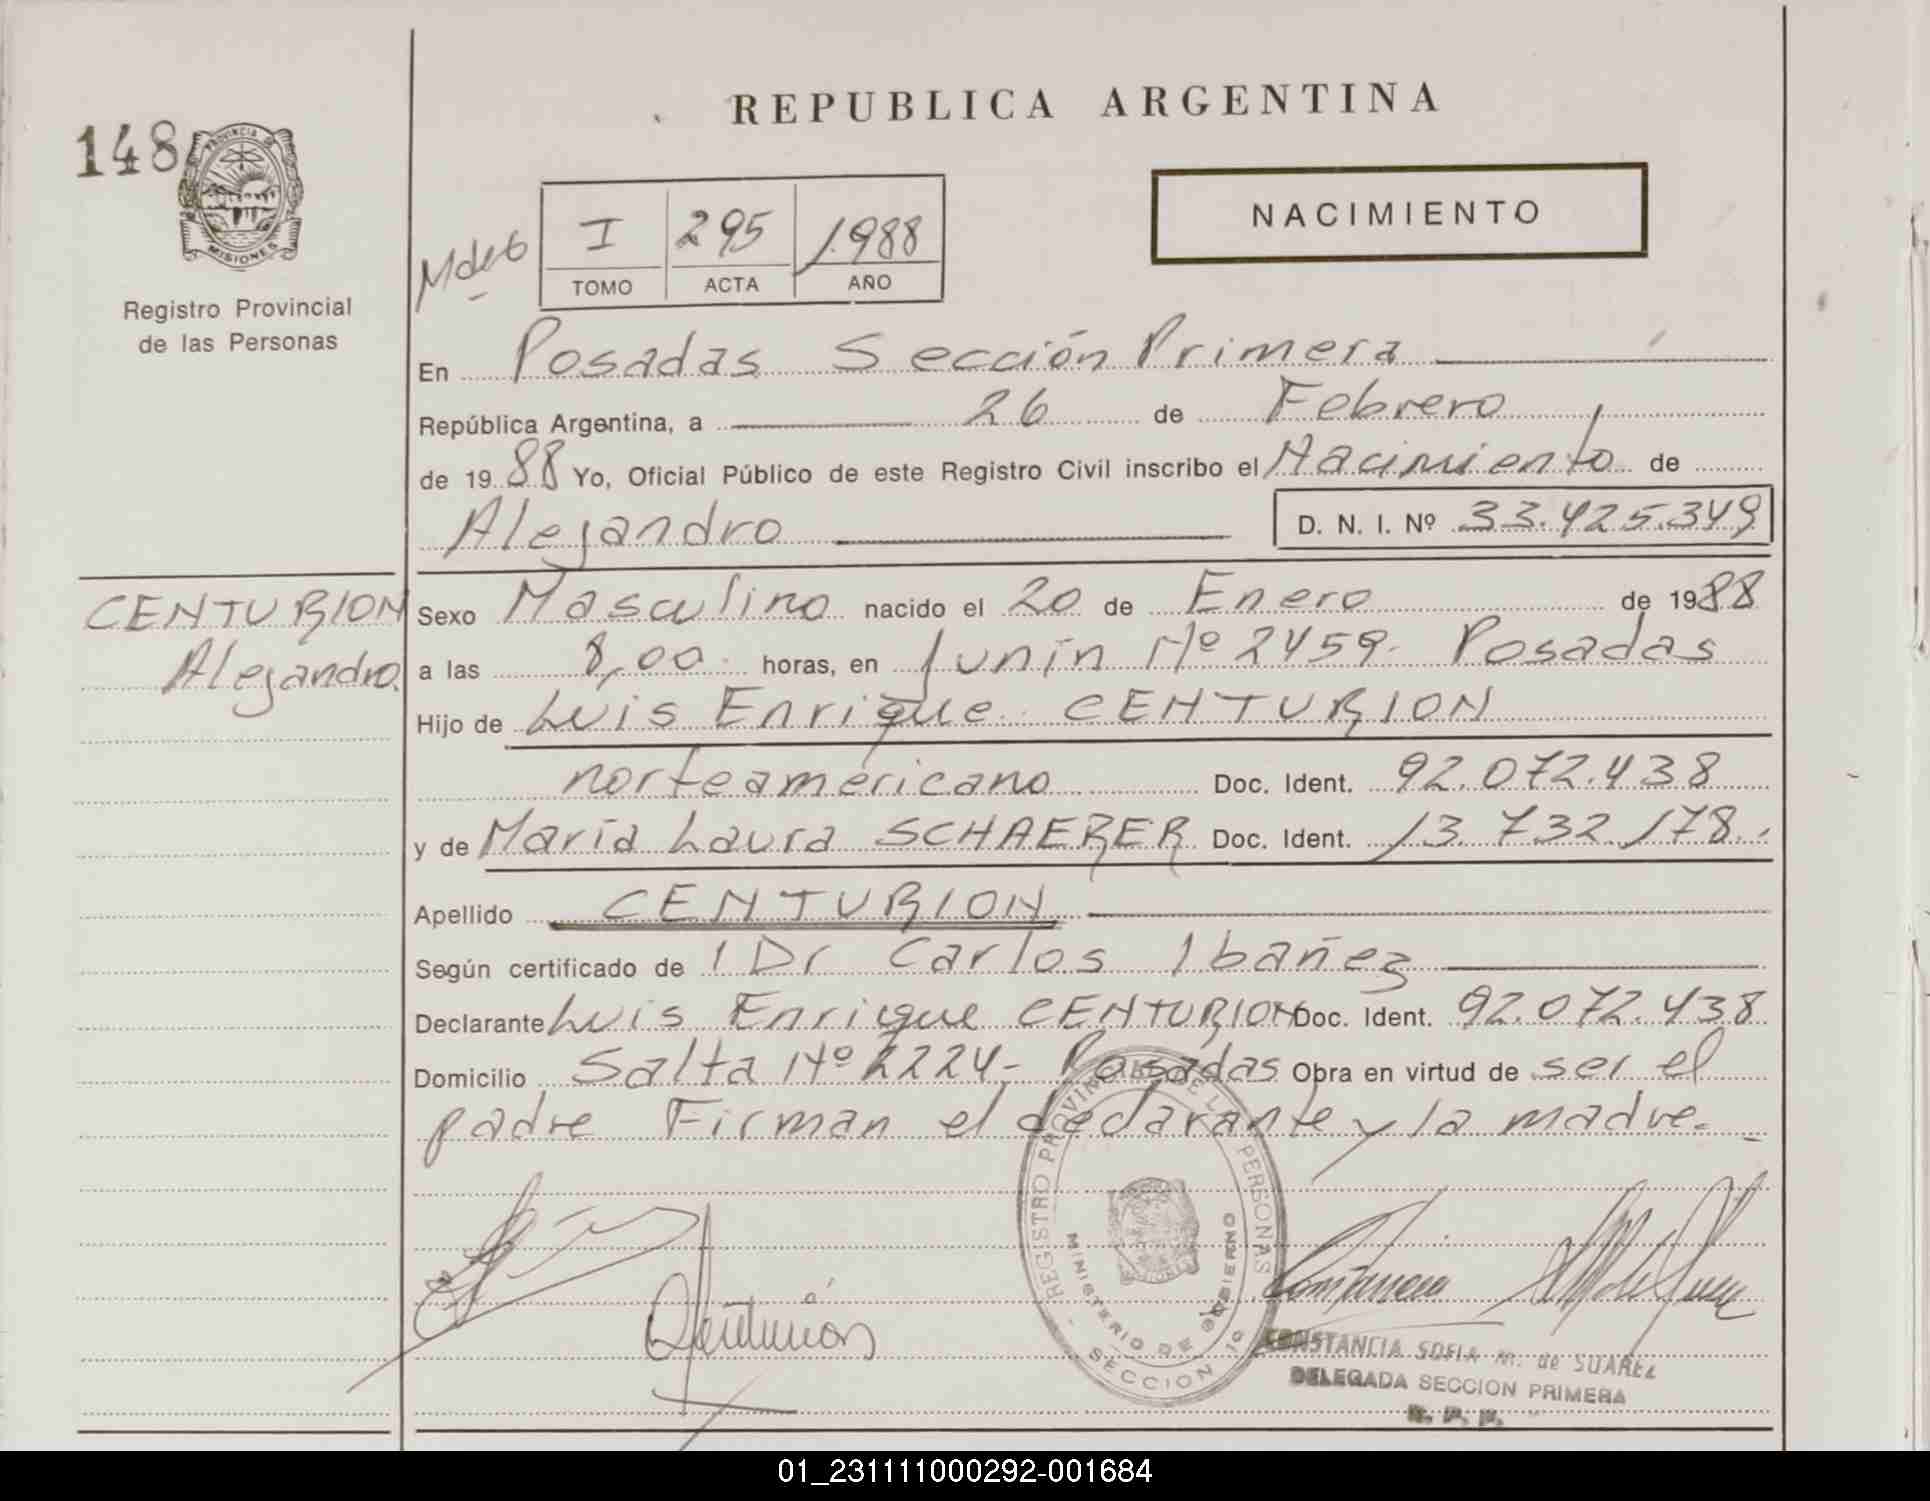 REPUBLICA ARGENTINA
148
PROVINCIA DE
MISIONES
Registro Provincial
de las Personas
NACIMIENTO
I 295 1.988
TOMO ACTA AÑO
En Posadas Sección Primera
República Argentina, a 26 de Febrero
de 19 88 Yo, Oficial Público de este Registro Civil inscribo el Nacimiento de
Alejandro D. N. I. Nº 33.425.349
CENTURION
Alejandro.
Sexo Masculino nacido el 20 de Enero de 1988
a las 8,00 horas, en Junín Nº 2459. Posadas
Hijo de Luis Enrique CENTURION
norteaméricano Doc. Ident. 92.072.438
y de María Laura SCHAERER Doc. Ident. 13.732.178.
Apellido CENTURION
Según certificado de 1 Dr Carlos Ibañez
Declarante Luis Enrique CENTURION Doc. Ident. 92.072.438
Domicilio Salta Nº 2224- Posadas Obra en virtud de ser el
padre Firman el declarante y la madre.
REGISTRO PROVINCIAL DE LAS PERSONAS
MINISTERIO DE GOBIERNO
SECCION 1º
CONSTANCIA SOFIA M. de SUAREZ
DELEGADA SECCION PRIMERA
R. P. P.
01_231111000292-001684